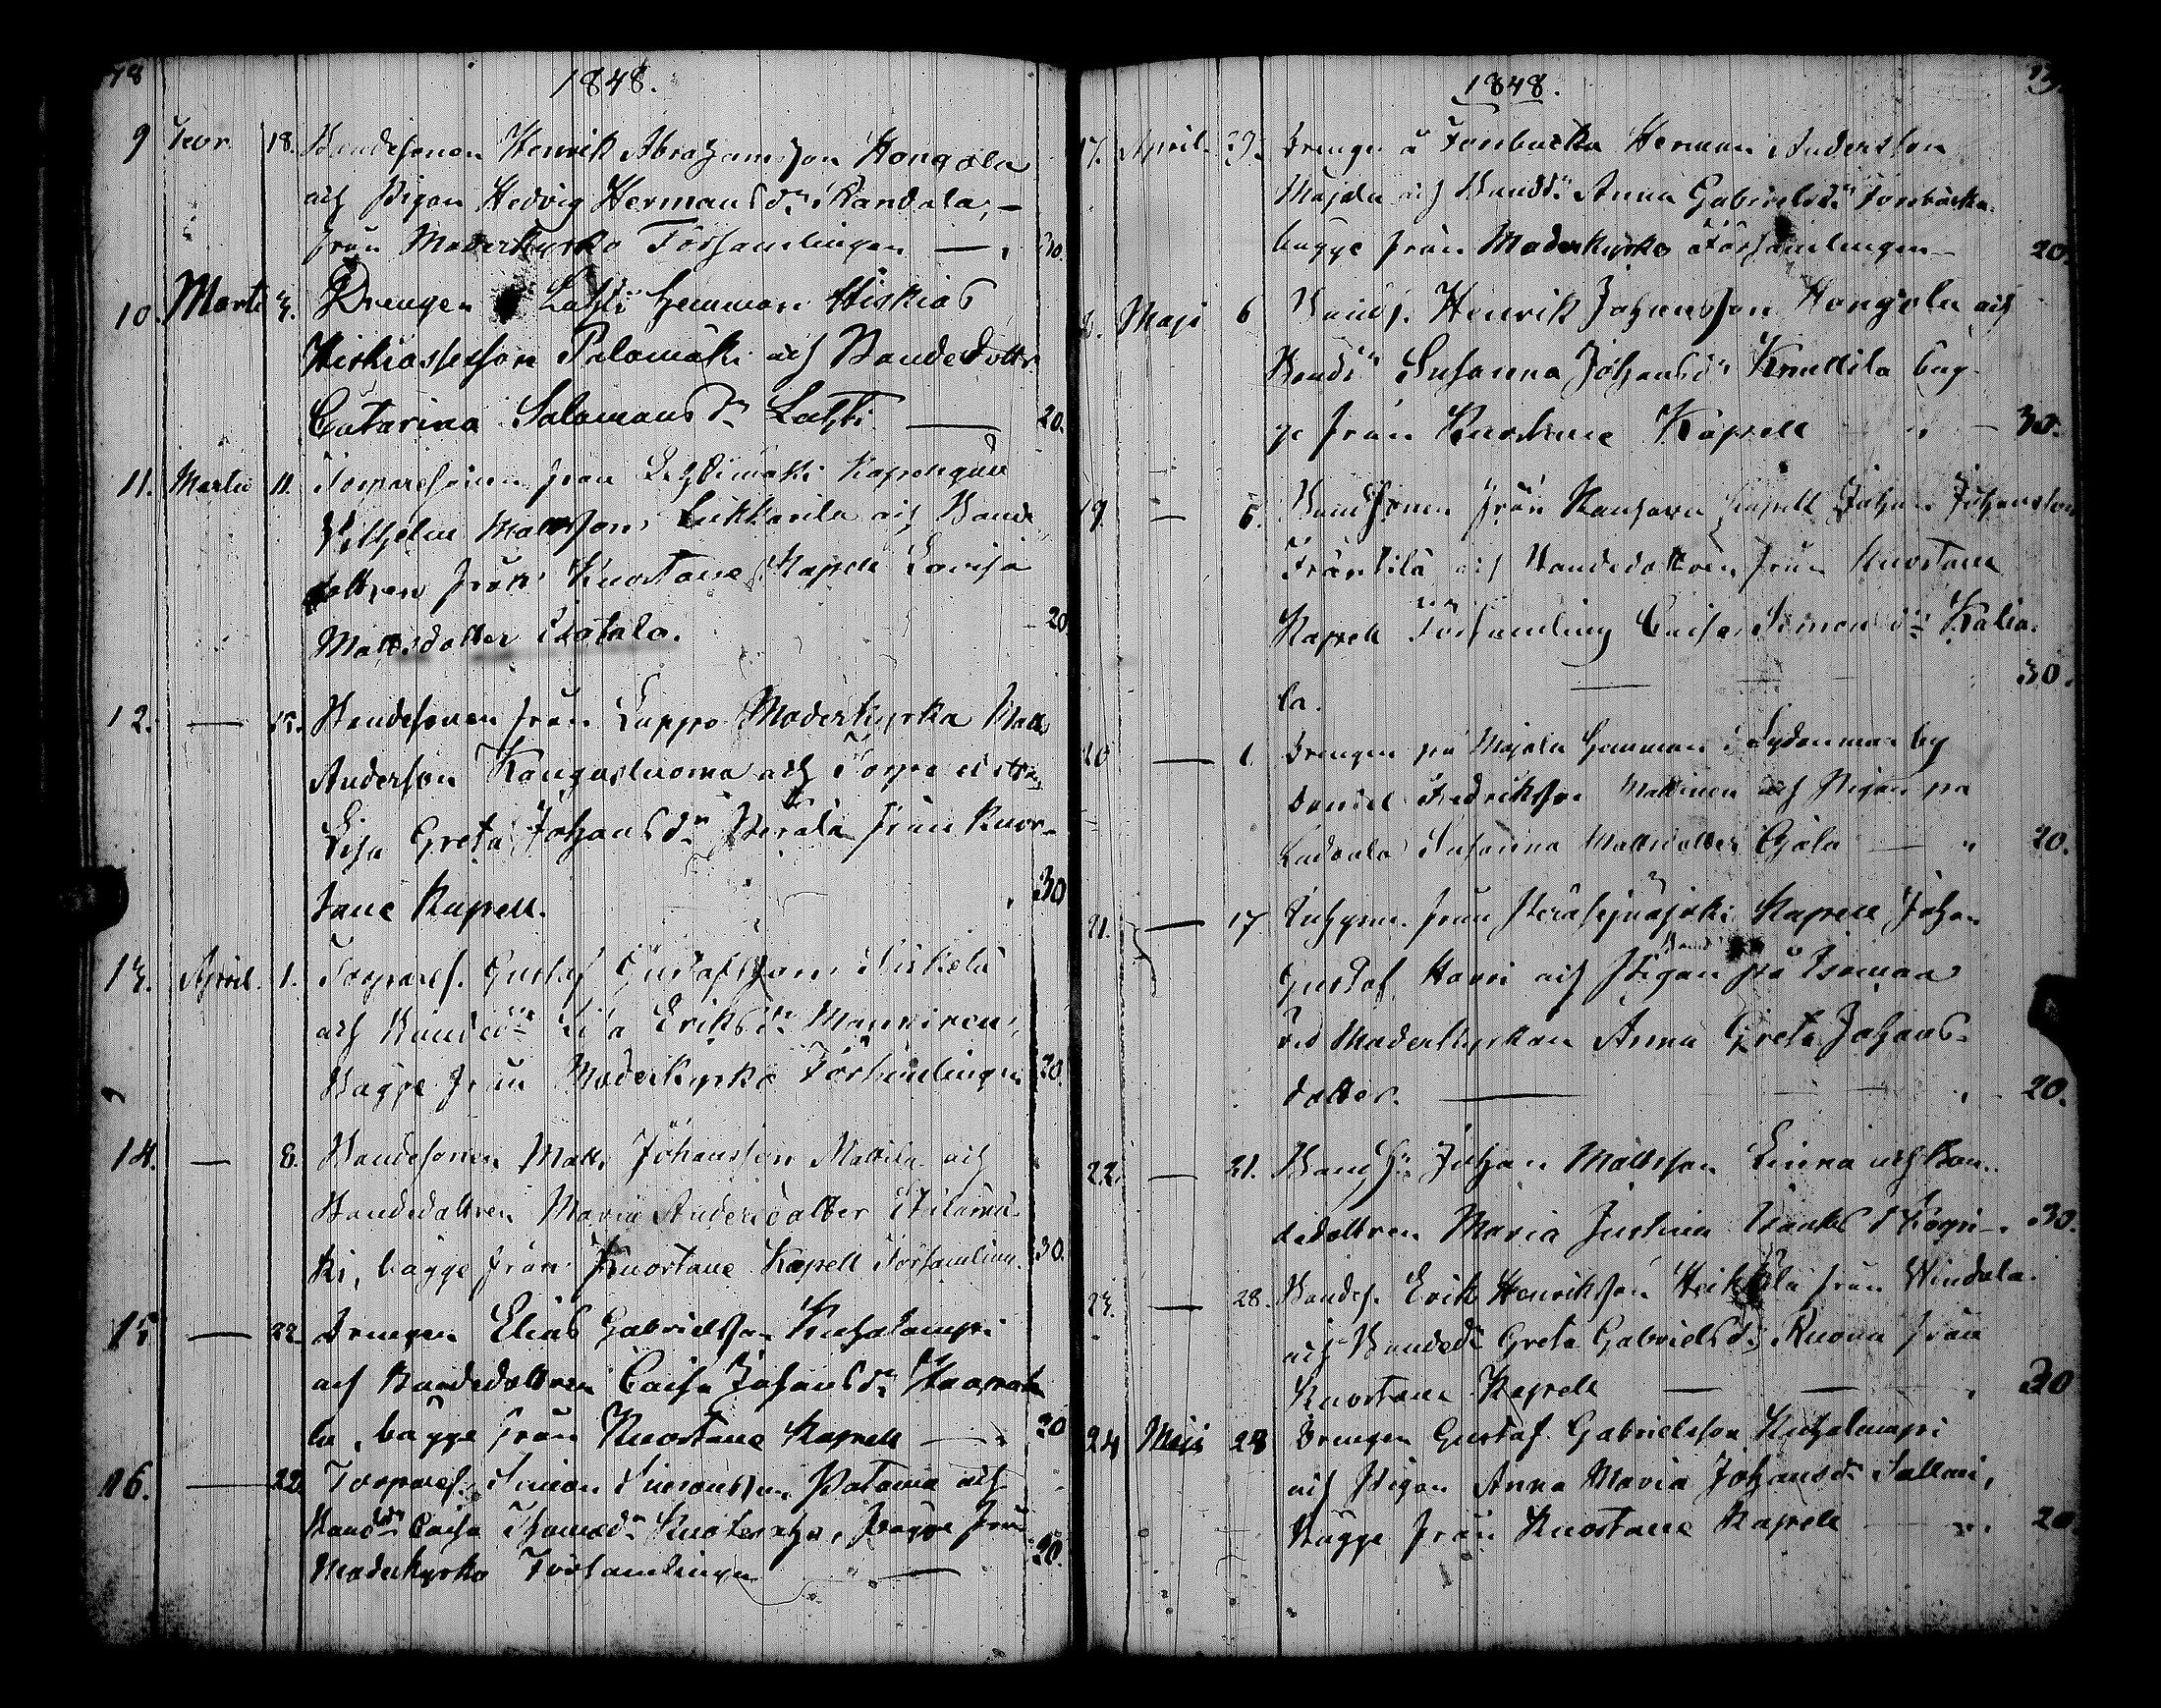 78
1848.
9 Febr 18. Bondesonen Henrik Abrahamsson Hongola
och Pigan Hedvig Hermansdr Skandala,
från Moderkyrko Församlingen — 30.
10. Marti 3. Drengen Lahti hemman Hiskias
Hiskiasson Palomäki och Bondedottr
Catarina Salomonsdr Lahti — 20.
11. Martii 11. Torparesonen från Lehtimäki Kapellgäll
Vilhelm Mattsson och Bonde
dottren från Kuortane Kapell Lovisa
Mattsdotter Isotalo. 20
12. — 15. Bondesonen från Lappo Moderkyrka Matts
Andersson Kangasluoma och Torparedottr
Lisa Greta Johansdr Perälä från Kuor-
tane Kapell. 30
13. April. 1. Torpares. Gustaf Gustafsson
och Bondedr Eriksdr Manninen,
Bägge från Moderkyrko Församlingen 20.
14. — 8. Bondesonen Matts Johansson Mattila och
Bondedottren Maria Andersdotter
ki, bägge från Kuortane Kapell Församling. 30.
15 — 22. Drengen Elias Gabrielsson Kuhalampi
och Bondedottren Caisa Johansdr Haapa
la, bägge från Kuortane Kapell — 20
16. — 22. Torpares. Simon Simonsson Patama och
Bonddr Caisa Thomædr bägge från
Moderkyrko Församlingen — 20.
1848.
17. April. 29. Drengen å Tonbacka Herman Andersson
Majala och Bonddr Anna Gabrielsdr Tonbacka
bägge från Moderkyrko Församlingen — 20.
8. Maji 6 Bonds. Henrik Johansson Hongola och
Bondr Susanna Johansdr Knuttila bäg-
ge från Kuortane Kapell — 30.
19 — 6. Bondsonen från Kauhava Kapell Johan Johansson
Fräntilä och Bondedottren från Kuortane
Kapell Församling Caisa Simonsdr Kalia-
la. — 30.
20 — Drengen på Majala hemman i Sydänmaa by
Daniel Fredriksson Mattinen och Pigan på
Susanna Mattsdotter — 20.
21. — 17 Inhyses. från Peräseinäjoki Kapell Johan
Gustaf Harri och Pigan på Isomaa
vid Moderkyrkan Anna Greta Johans-
dotter. — 20.
22. — 21. Bond Sn Johan Mattsson Linna och Bon-
dedottren Maria Justina Isaksdr — 30.
23. — 28. Bondes. Erik Henriksson Heikkilä från Windala
och Bondedr Greta Gabrielsdr Ruona från
Kuortane Kapell — 30
24 Maji 28 Drengen Gustaf Gabrielsson Kuhalampi
och Pigan Anna Maria Johansdr Sallmi,
Bägge från Kuortane Kapell — 20